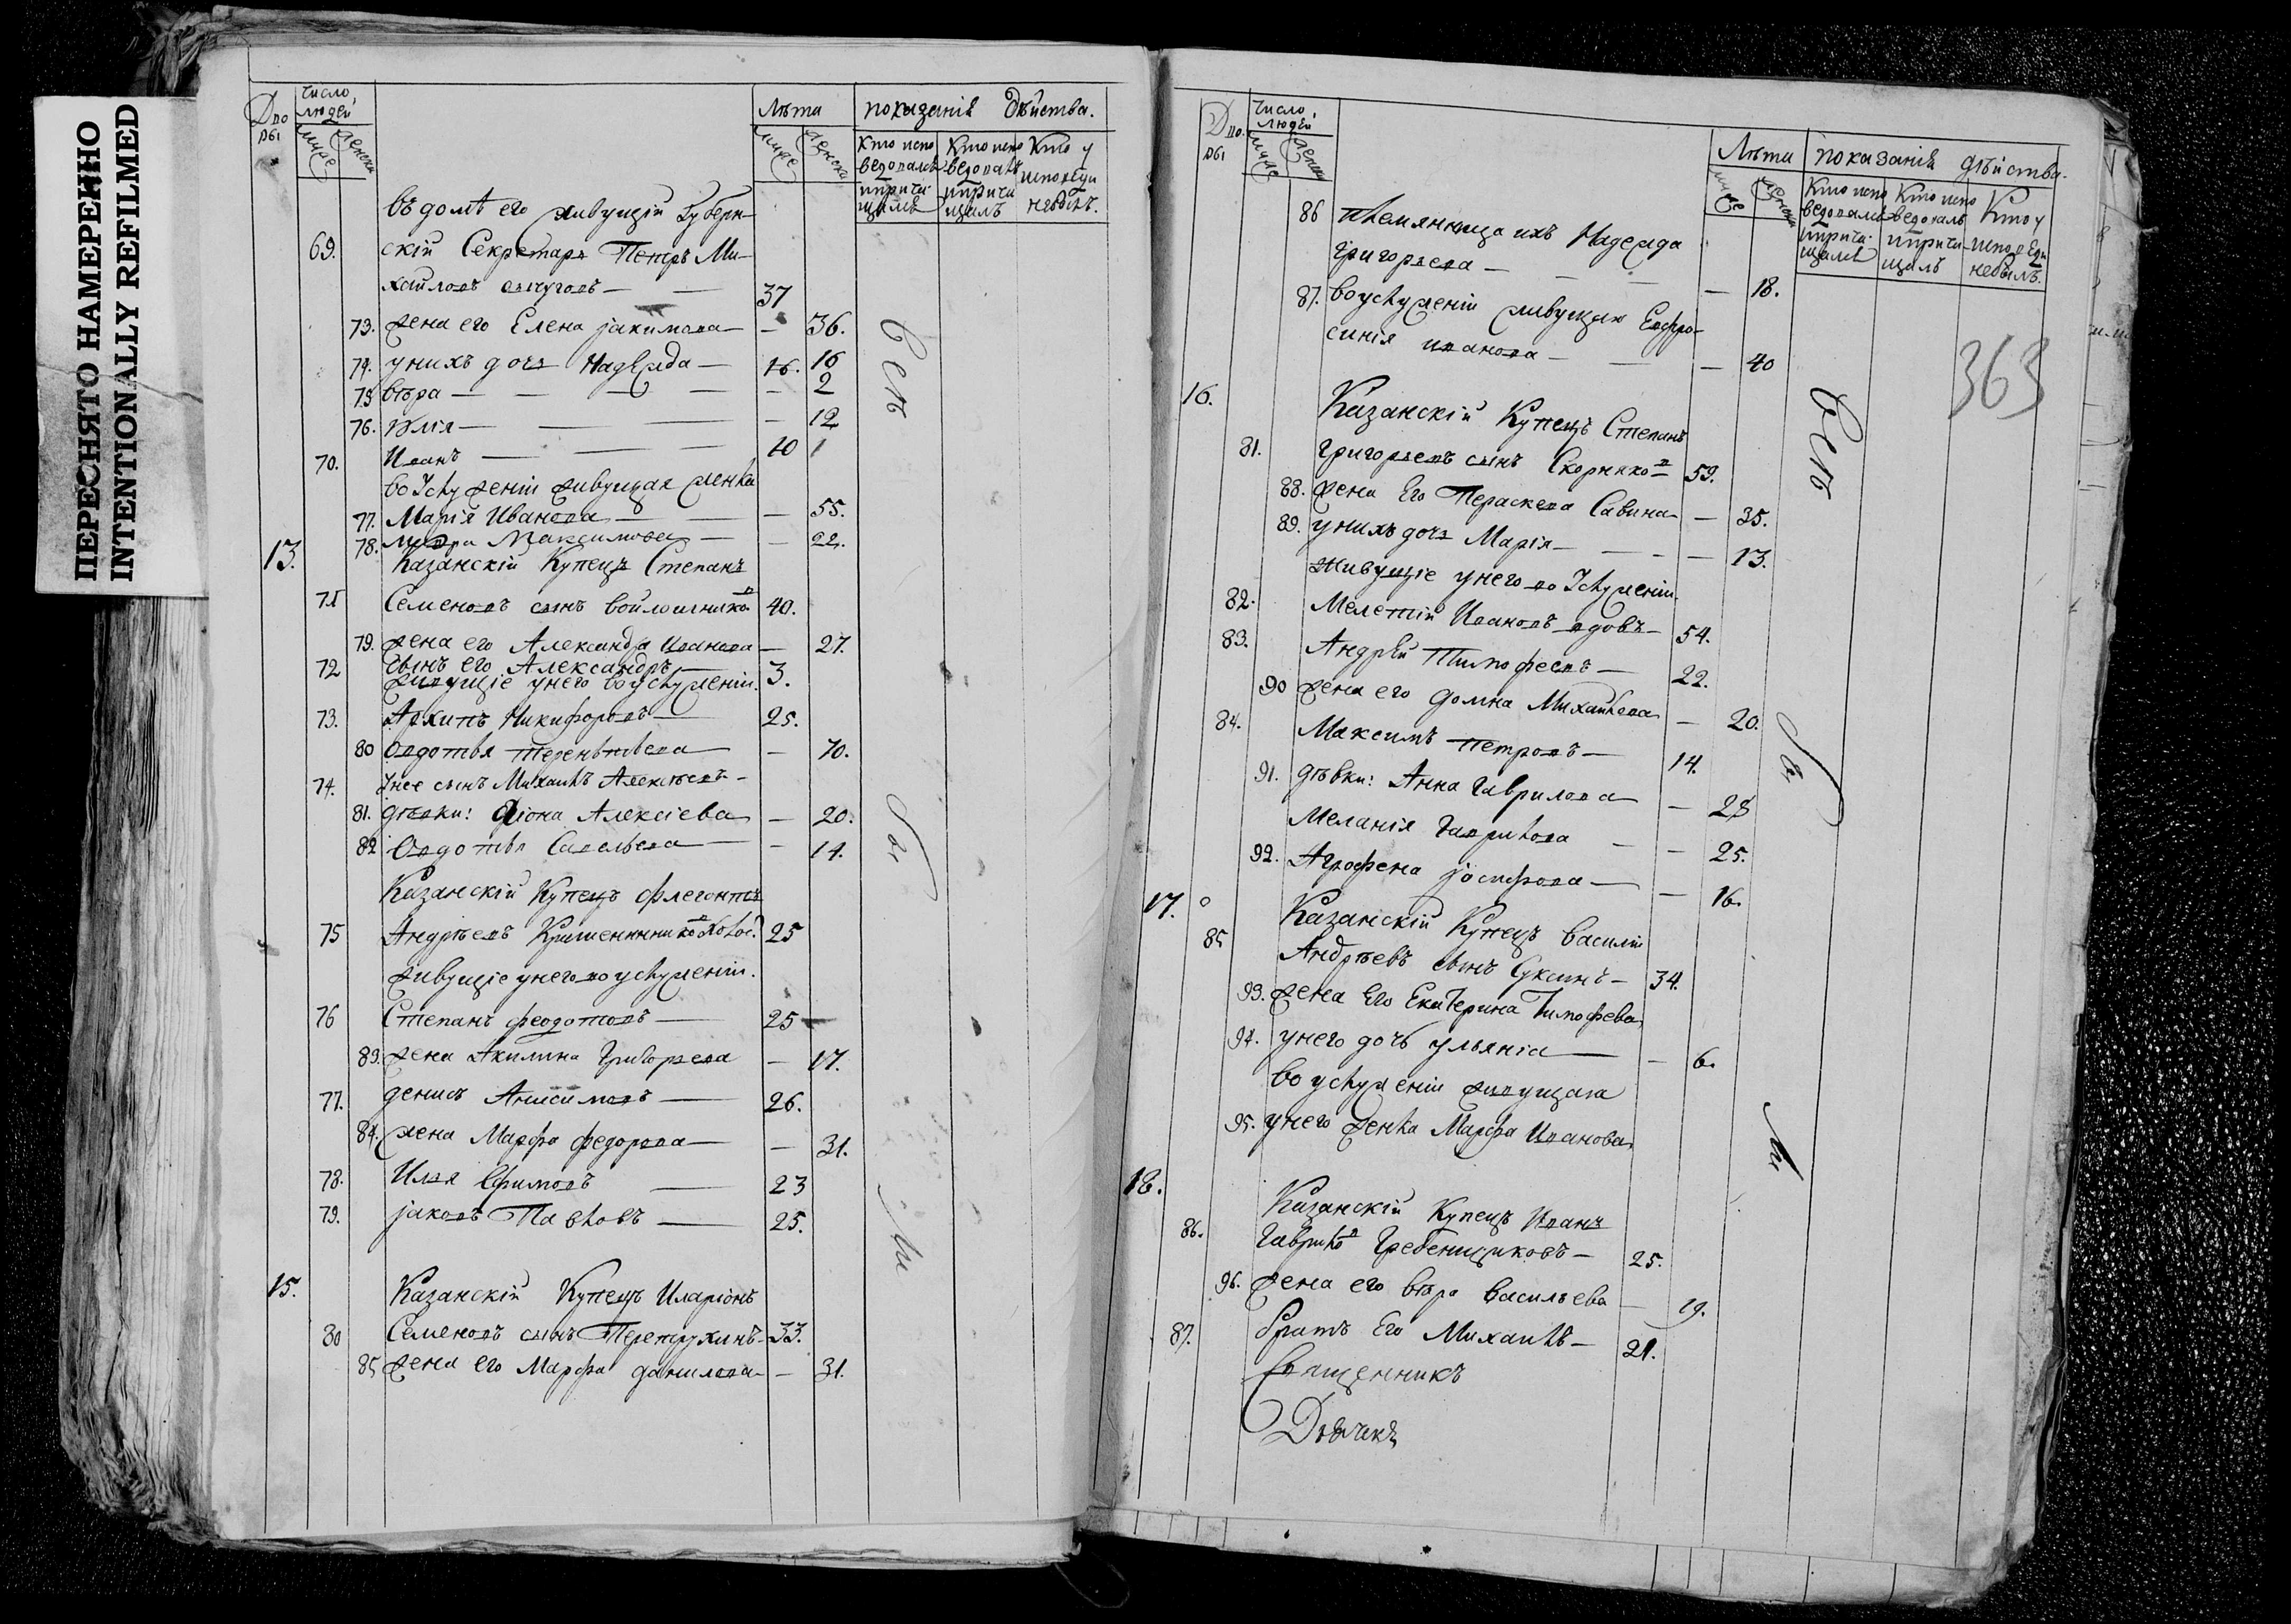 ПЕРЕСНЯТО НАМЕРЕННО
INTENTIONALLY REFILMED
число людей
Лѣта показанія дѣйства.
Кто испо Кто испо Кто у
ведовалсѧ ведовалъ исповѣди
и причи и причи небылъ.
щалсѧ щалъ
въ домѣ его живущій Губерн-
69. скій Секретарь Петръ Ми-
хайловъ — 37
73. жена его Елена Іакимова — — 36.
74. у нихъ дочь Надежда — 16. 16
75 вѣра — — 2
76. Юлія — — 12
70. Иванъ — 10 1
во услуженіи живущая женка
77. Марія Иванова — — 55.
78. Максимова — — 22.
13. Казанскій Купецъ Степанъ
71 Семеновъ сынъ войлошниковъ 40.
79. жена его Александра Иванова — 27.
72 сынъ его Александръ — 3.
живущіе у него во услуженіи.
73. Архипъ Никифоровъ — 25.
80 Овдотья Терентьева — — 70.
74. у нее сынъ Михаилъ Алексѣевъ —
81. дѣвки: Ѳіона Алексіева — 20.
82 Овдотья Савельева — — 14.
Казанскій Купецъ Флегонтъ
75 Андрѣевъ холос. 25
живущіе у него во услуженіи.
76 Степанъ Феодотовъ — 25 —
83. жена Акилина Григорьева — 17.
77. денисъ Анисимовъ — 26.
84. жена Марфа Федорова — — 31.
78. Илья Ефимовъ — 23
79. Іаковъ Павловъ — 25.
15. Казанскій Купецъ Иларіонъ
80 Семеновъ сынъ Перетрухинъ — 33.
85 жена его Марфа данилова — — 31.
Всѣ
число людей
Лѣта показанія дѣйства.
Кто испо Кто испо Кто у
ведовалсѧ ведовалъ исповѣди
и причи и причи небылъ.
щалсѧ щалъ
363
86 племянница ихъ Надежда
Григорьева — — 18.
87. во услуженіи живущая Евфро-
синія иванова — — 40
16. Казанскій Купецъ Степанъ
81. Григорьевъ сынъ Скорняковъ 59.
88. жена Его Параскева Савина — — 35.
89. у нихъ дочь Марія — — 13.
живущіе у него во услуженіи.
82. Мелетій Ивановъ вдовъ — 54.
83. Андрей Тимофеевъ — 22.
90 жена его домна Михайлова — 20.
84. Максимъ Петровъ — 14.
91. дѣвки: Анна Гаврилова — 28
Меланія Гаврилова — — 25.
92. Агрофена Іосифова — — 16.
17. Казанскій Купецъ василій
85 Андрѣевъ сынъ Суксинъ — 34.
93. жена Его Екатерина Тимофева
94. у него дочь ульянія — — 6.
во услуженіи живущая
95. у него женка Марфа Иванова
18. Казанскій Купецъ Иванъ
86. Гавриловъ Гребенщиковъ — 25.
96. жена его вѣра васильева — 19.
87. братъ Его Михаилъ — 21.
Священникъ
Дьячекъ
Всѣ